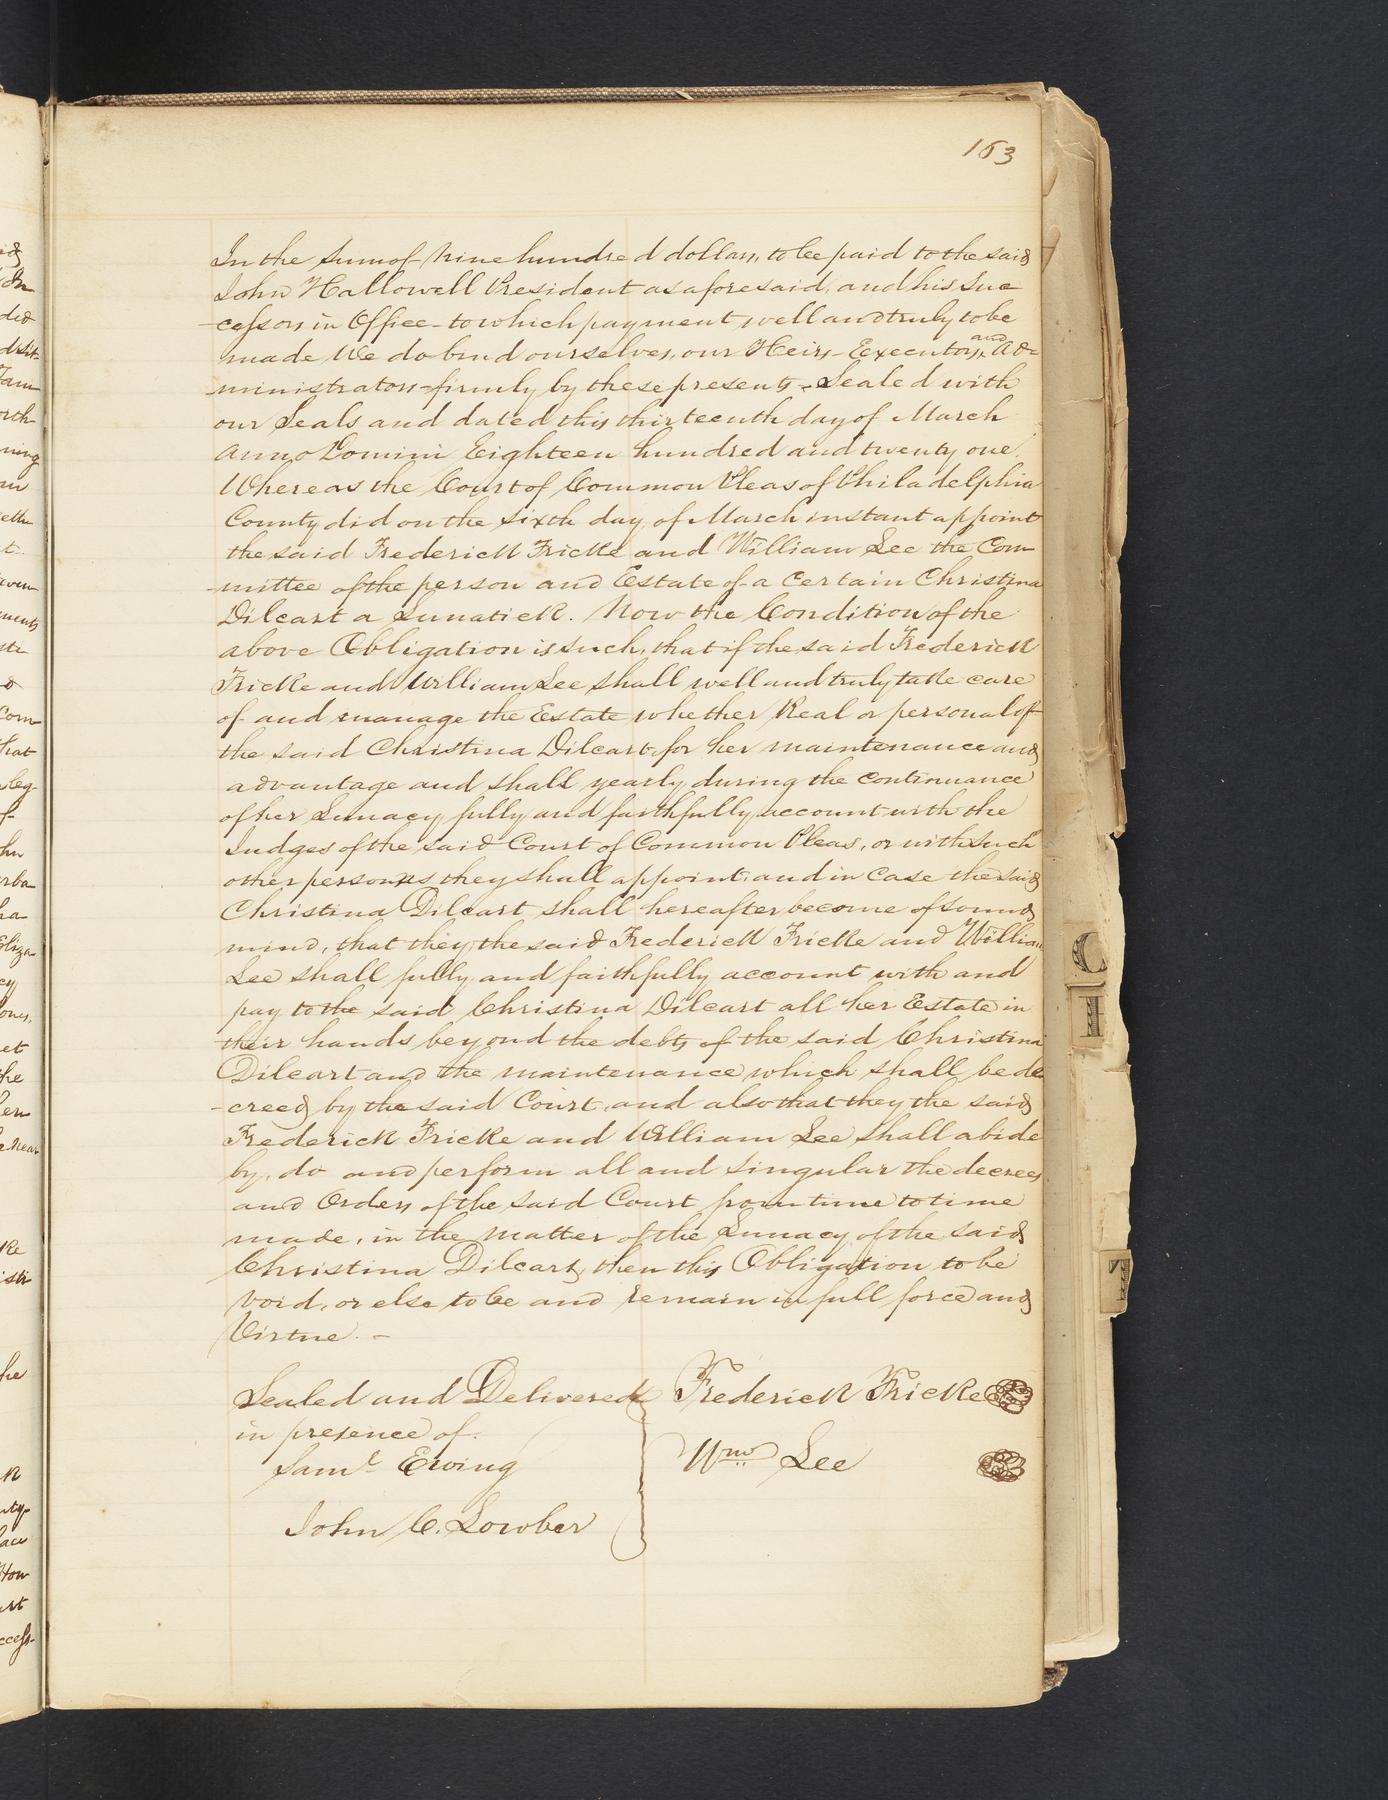 163
In the sum of Nine hundred dollars, to be paid to the said
John Hallowell President as aforesaid, and his Suc
-cessors in Office - to which payment well and truly to be
made We do bind ourselves, our Heirs - Executors, and Ad-
-ministrators firmly by these presents - Sealed with
our Seals and dated this thirteenth day of March
Anno Domini Eighteen hundred and twenty one.
Whereas the Court of Common Pleas of Philadelphia
County did on the sixth day of March instant appoint
the said Frederick Fricke and William Lee the Com-
-mittee of the person and Estate of a certain Christina
Dilcart a Lunatick. Now the Condition of the
above Obligation is such, that if the said Frederick
Fricke and William Lee shall well and truly take care
of and manage the Estate whether Real or personal of
the said Christina Dilcart, for her maintenance and
advantage and shall yearly during the continuance
of her Lunacy fully and faithfully account with the
Judges of the said Court of Common Pleas, or with such
other person as they shall appoint, and in Case the said
Christina Dilcart shall hereafter become of sound
mind, that they the said Frederick Fricke and William
Lee shall fully and faithfully account with and
pay to the said Christina Dilcart all her Estate in
their hands beyond the debts of the said Christina
Dilcart and the maintenance which shall be de
-creed by the said Court, and also that they the said
Frederick Fricke and William Lee shall abide
by, do and perform all and singular the decrees
and Orders of the said Court from time to time
made, in the Matter of the Lunacy of the said
Christina Dilcart, then this Obligation to be
void, or else to be and remain in full force and
Virtue. -
Sealed and Delivered
in presence of.
Saml Ewing
John C. Lowber
Frederick Fricke
Wm Lee